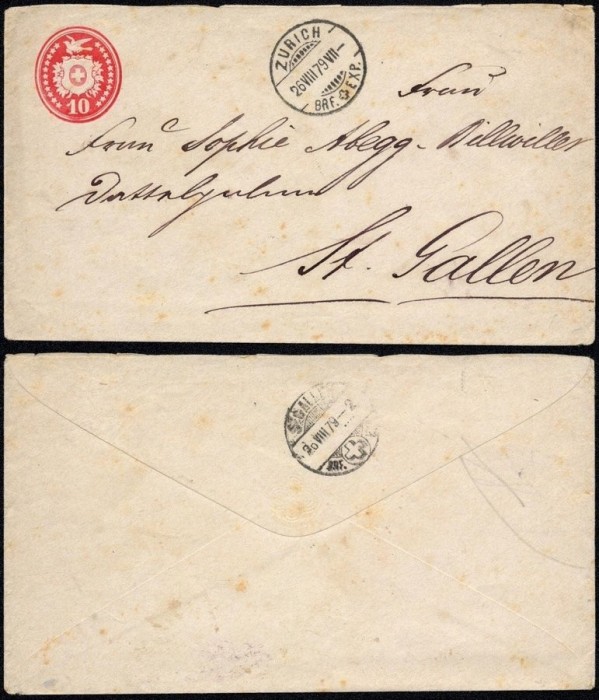 10
ZÜRICH
26 VIII 79 VII–
BRF. EXP.
Frau
Frau Sophie Abegg-Billwiller
St. Gallen
ST. GALLEN
26 VIII 79–2
BRF.